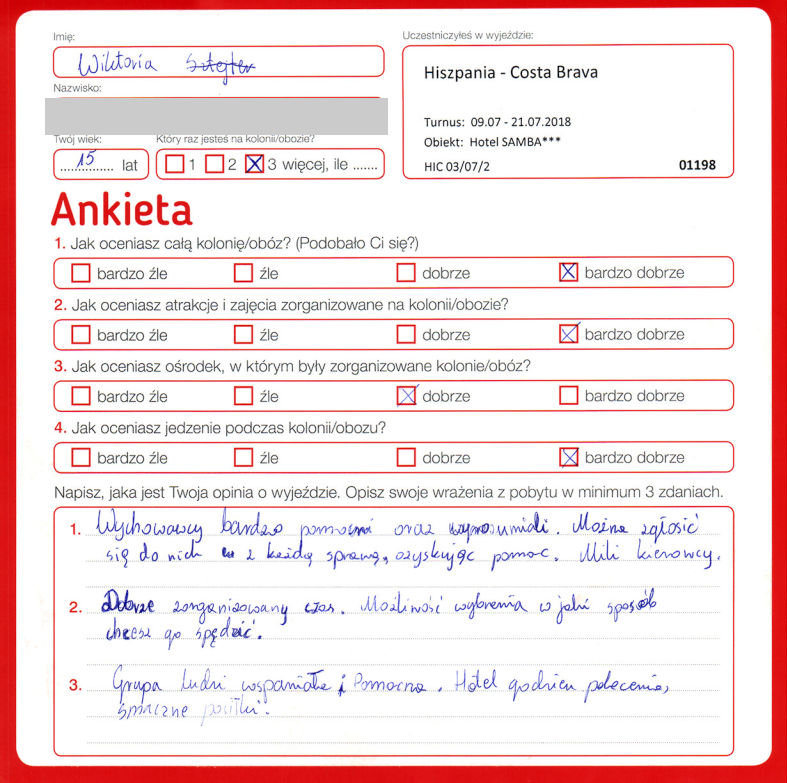 Imię:
Wiktoria
Nazwisko:
Twój wiek:
15 lat
Który raz jesteś na kolonii/obozie?
1 2 3 więcej, ile .......
Uczestniczyłeś w wyjeździe:
Hiszpania - Costa Brava
Turnus: 09.07 - 21.07.2018
Obiekt: Hotel SAMBA***
HIC 03/07/2 01198
Ankieta
1. Jak oceniasz całą kolonię/obóz? (Podobało Ci się?)
bardzo źle źle dobrze bardzo dobrze
2. Jak oceniasz atrakcje i zajęcia zorganizowane na kolonii/obozie?
bardzo źle źle dobrze bardzo dobrze
3. Jak oceniasz ośrodek, w którym były zorganizowane kolonie/obóz?
bardzo źle źle dobrze bardzo dobrze
4. Jak oceniasz jedzenie podczas kolonii/obozu?
bardzo źle źle dobrze bardzo dobrze
Napisz, jaka jest Twoja opinia o wyjeździe. Opisz swoje wrażenia z pobytu w minimum 3 zdaniach.
1. Wychowawcy bardzo pomocni oraz wyrozumiali. Można zgłosić
się do nich z każdą sprawą, uzyskując pomoc. Mili kierowcy.
2. Dobrze zorganizowany czas. Możliwość wybrania w jaki sposób
chcesz go spędzić.
3. Grupa ludzi wspaniała i Pomocna. Hotel godzien polecenia,
smaczne posiłki.